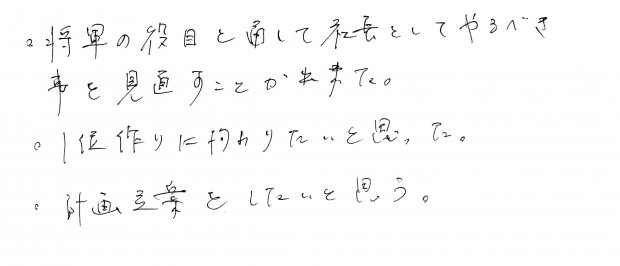 ・将軍の役目を通して社長としてやるべき
事を見直すことが出来た。
・1位作りに拘わりたいと思った。
・計画立案をしたいと思う。